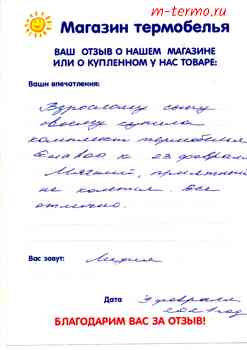 m-termo.ru
Магазин термобелья
ВАШ ОТЗЫВ О НАШЕМ МАГАЗИНЕ
ИЛИ О КУПЛЕННОМ У НАС ТОВАРЕ:
Ваши впечатления:
Взрослому сыну
своему купила
комплект термобелья
к 23 феврал
Мягкий, приятный
не колется. Все
отлично.
Вас зовут: Лидия
Дата 3 февраля
год
БЛАГОДАРИМ ВАС ЗА ОТЗЫВ!